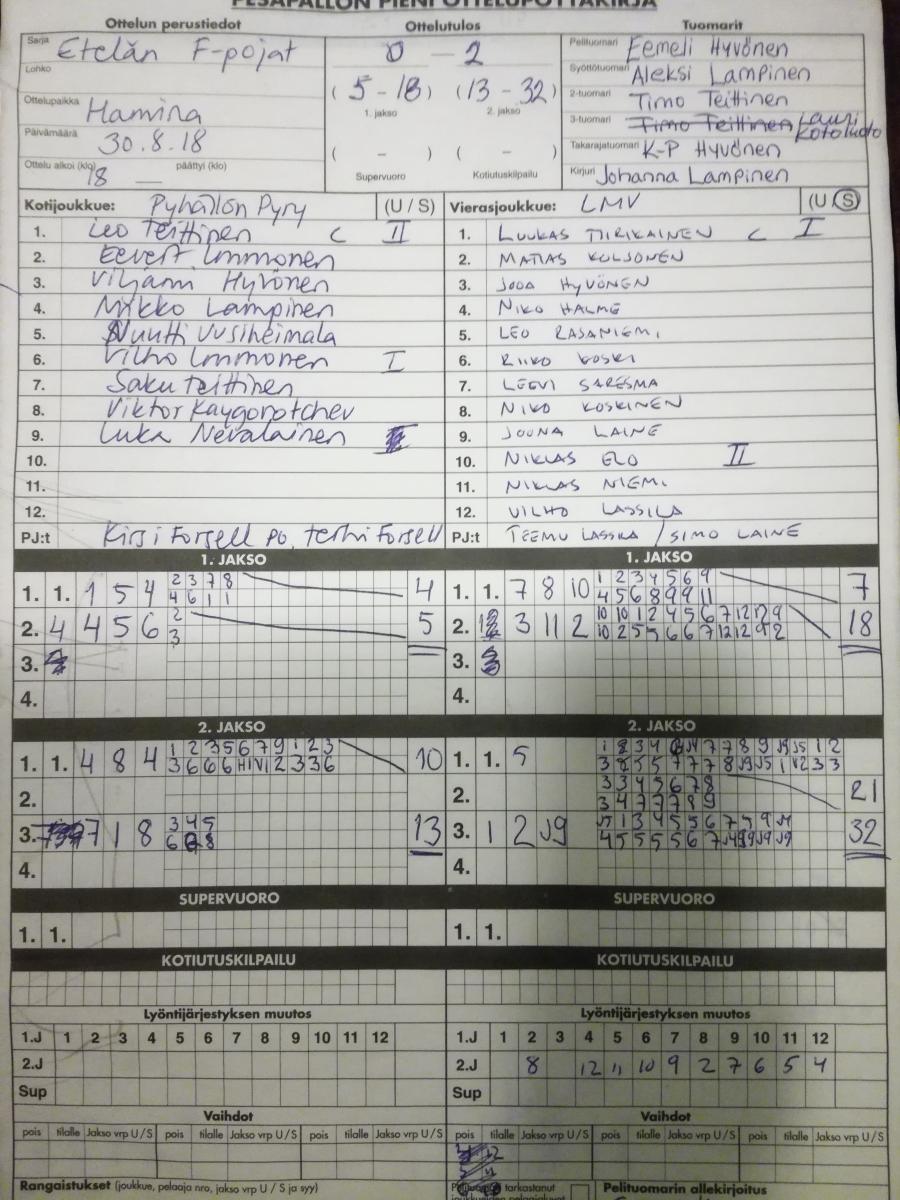 PESÄPALLON PIENI OTTELUPÖYTÄKIRJA
Ottelun perustiedot Ottelutulos Tuomarit
Sarja Etelän F-pojat
Lohko
Ottelupaikka Hamina
Päivämäärä 30.8.18
Ottelu alkoi (klo) 18 päättyi (klo) —
0 — 2
( 5 - 18 ) ( 13 - 32 )
1. jakso 2. jakso
( - ) ( - )
Supervuoro Kotiutuskilpailu
Pelituomari Eemeli Hyvönen
Syöttötuomari Aleksi Lampinen
2-tuomari Timo Teittinen
3-tuomari Timo Teittinen Lauri Kotoluoto
Takarajatuomari K-P Hyvönen
Kirjuri Johanna Lampinen
Kotijoukkue: Pyhällön Pyry (U / S)
1. Leo Teittinen C II
2. Eevert Immonen
3. Viljami Hyvönen
4. Mikko Lampinen
5. Nuutti Uusiheimala
6. Vilho Immonen I
7. Saku Teittinen
8. Viktor Kaygorotchev
9. Luka Nevalainen
10.
11.
12.
PJ:t Kirsi Forsell po, Terhi Forsell
Vierasjoukkue: LMV (U / S)
1. LUUKAS TIIRIKAINEN C I
2. MATIAS KULJONEN
3. JOOA HYVÖNEN
4. NIKO HALME
5. LEO RASANIEMI
6. RIIKO KOSKI
7. LEEVI SARESMA
8. NIKO KOSKINEN
9. JOONA LAINE
10. NIKLAS ELO II
11. NIKLAS NIEMI
12. VILHO LASSILA
PJ:t TEEMU LASSILA / SIMO LAINE
1. JAKSO 1. JAKSO
1. 1. 1 5 4 2 3 7 8 4
4 6 1 1
2. 4 4 5 6 2 5
3
3.
4.
1. 1. 7 8 10 1 2 3 4 5 6 9 7
4 5 6 8 9 9 11
2. 3 11 2 10 10 1 2 4 5 6 7 12 12 9 18
10 2 5 5 6 6 7 12 12 9 2
3.
4.
2. JAKSO 2. JAKSO
1. 1. 4 8 4 1 2 3 5 6 7 9 1 2 3 10
3 6 6 6 1 2 3 3 6
2.
3. 7 1 8 3 4 5 13
6 8
4.
1. 1. 5
2. 3 3 4 5 6 7 8 21
3 4 7 7 7 8 9
3. 1 2 J9 32
4.
SUPERVUORO SUPERVUORO
1. 1. 1. 1.
KOTIUTUSKILPAILU KOTIUTUSKILPAILU
Lyöntijärjestyksen muutos Lyöntijärjestyksen muutos
1.J 1 2 3 4 5 6 7 8 9 10 11 12 1.J 1 2 3 4 5 6 7 8 9 10 11 12
2.J 2.J 8 12 11 10 9 2 7 6 5 4
Sup Sup
Vaihdot Vaihdot
pois tilalle Jakso vrp U / S pois tilalle Jakso vrp U / S pois tilalle Jakso vrp U / S pois tilalle Jakso vrp U / S pois tilalle Jakso vrp U / S pois tilalle Jakso vrp U / S
Rangaistukset (joukkue, pelaaja nro, jakso vrp U / S ja syy) Pelituomari tarkastanut Pelituomarin allekirjoitus